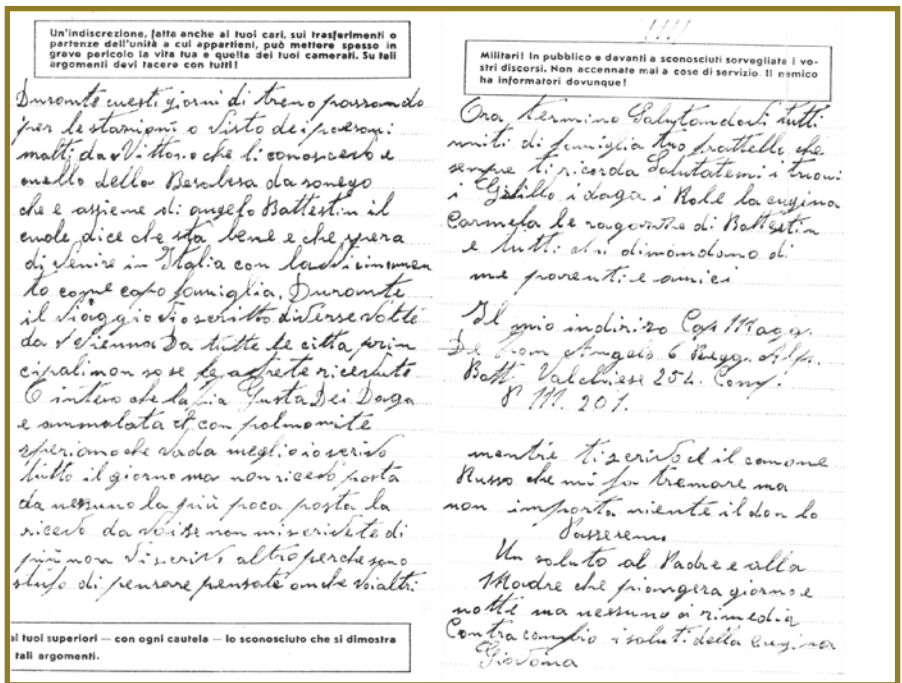 Un'indiscrezione, fatta anche ai tuoi cari, sui trasferimenti o
partenze dell'unità a cui appartieni, può mettere spesso in
grave pericolo la vita tua e quella dei tuoi camerati. Su tali
argomenti devi tacere con tutti!
Durante questi giorni di treno passando
per le stazioni o visto dei paesani
molti da Vittorio che li conoscevo e
quello della da sonego
che e assieme di angelo Battestin il
cuale dice che sta bene e che spera
di venire in Italia con
to come capo famiglia. Durante
il viaggio vio scritto diverse volte
da Vienna Da tutte le citta prin
cipali non so se le avrete ricevute
O inteso che la zia Giusta Dei Daga
e ammalata con polmonite
speriamo che vada meglio io scrivo
tutto il giorno ma non ricevo posta
da nessuno la più poca posta la
ricevo da voi se non mi scrivete di
più non vi scrivo altro perche sono
stufo di pensare pensate anche voialtri
ai tuoi superiori — con ogni cautela — lo sconosciuto che si dimostra
tali argomenti.
Militari! In pubblico e davanti a sconosciuti sorvegliate i vo-
stri discorsi. Non accennate mai a cose di servizio. Il nemico
ha informatori dovunque!
Ora termino Salutandovi tutti
uniti di famiglia tuo frattello che
sempre ti ricorda Salutatemi i
i i daga i Role la cugina
Carmela le ragazze di Battestin
e tutti che dimandano di
me parenti e amici
Il mio indirizo Cap Magg.
De Angelo 6 Regg. Alp.
Batt. Valchiese 254. Comp.
P M. 201.
mentre ti scrivo il canone
Russo che mi fa tremare ma
non importa niente il don lo
Passeremo
Un saluto al Padre e alla
Madre che piangera giorno e
notte ma nessuno ci rimedia
Contracambio i saluti della cugina
Giovana